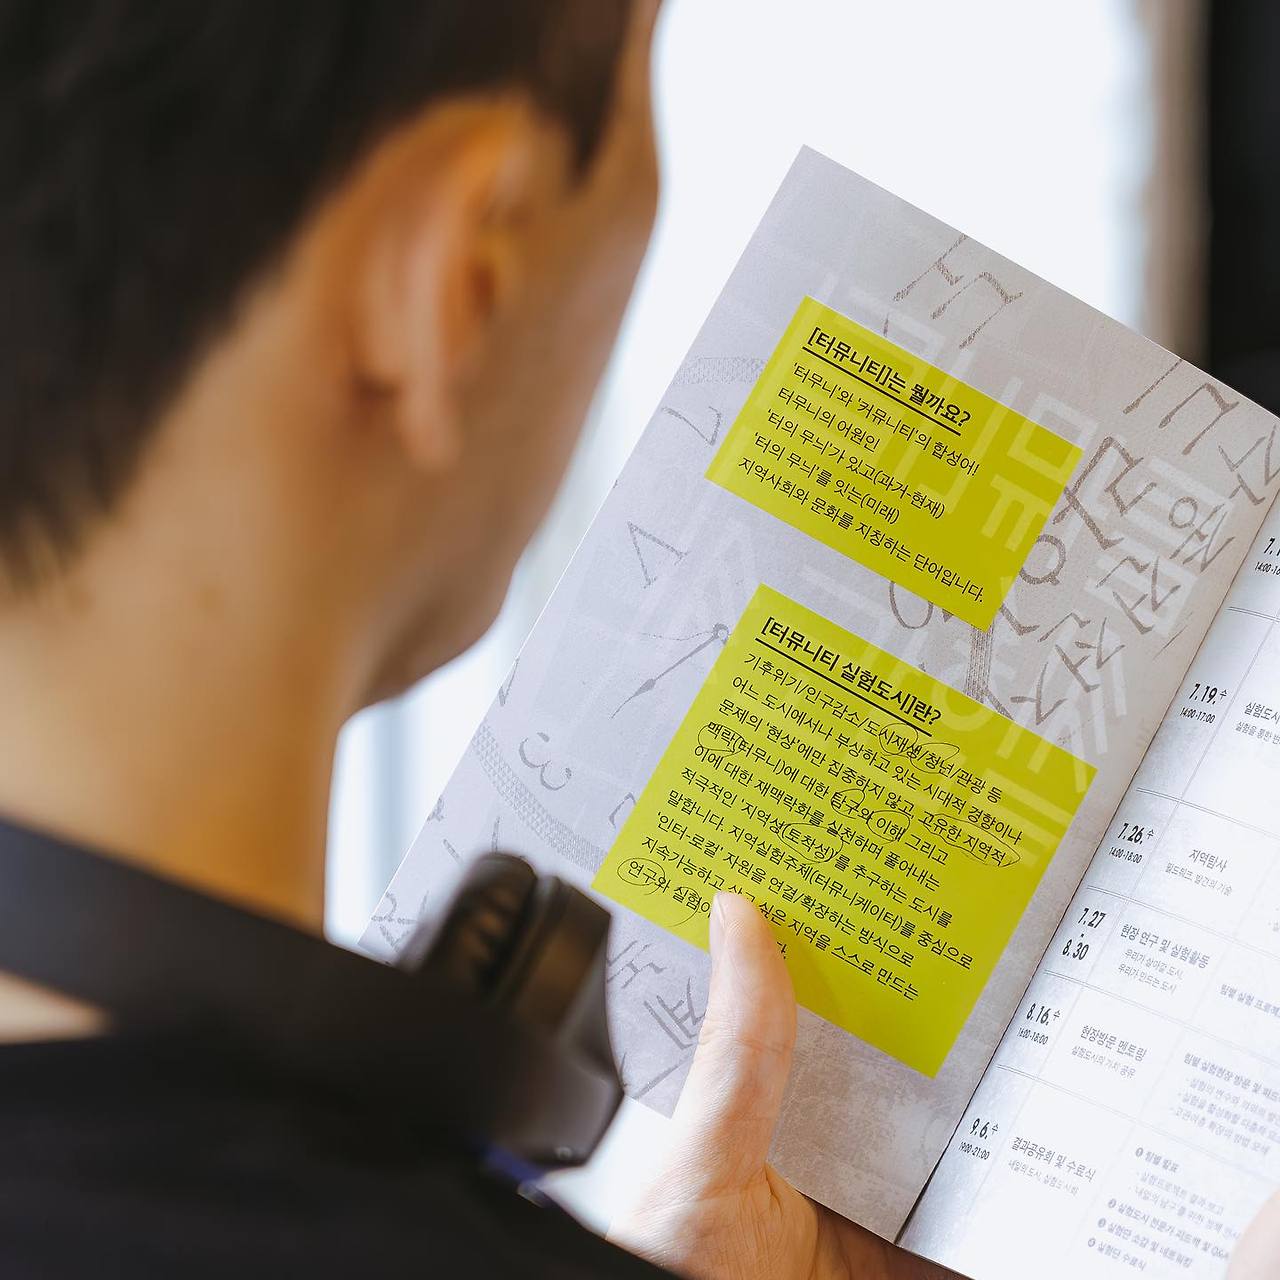 [터뮤니티]는 뭘까요?
'터무니'와 '커뮤니티'의 합성어!
터무니의 어원인
'터의 무늬'가 있고(과거-현재)
'터의 무늬'를 잇는(미래)
지역사회와 문화를 지칭하는 단어입니다.
[터뮤니티 실험도시]란?
기후위기/인구감소/도시재생/청년/관광 등
어느 도시에서나 부상하고 있는 시대적 경향이나
문제의 '현상'에만 집중하지 않고, 고유한 지역적
맥락(터무니)에 대한 탐구와 이해 그리고
이에 대한 재맥락화를 실천하며 풀어내는
적극적인 '지역성(토착성)'을 추구하는 도시를
말합니다. 지역실험주체(터뮤니케이터)를 중심으로
'인터-로컬' 자원을 연결/확장하는 방식으로
지속가능하고 살고 싶은 지역을 스스로 만드는
연구와 실험이
7.19.수
14:00-17:00
7.26.수
14:00-18:00
지역탐사
필드워크, 발견의 기술
7.27
8.30
현장 연구 및 실험활동
우리가 살아갈 도시,
우리가 만드는 도시
8.16.수
16:00-18:00
현장방문 멘토링
실험도시의 가치 공유
9.6.수
19:00-21:00
결과공유회 및 수료식
내일의 도시, 실험도시회
❶ 팀별 발표
❹ 실험단 수료식